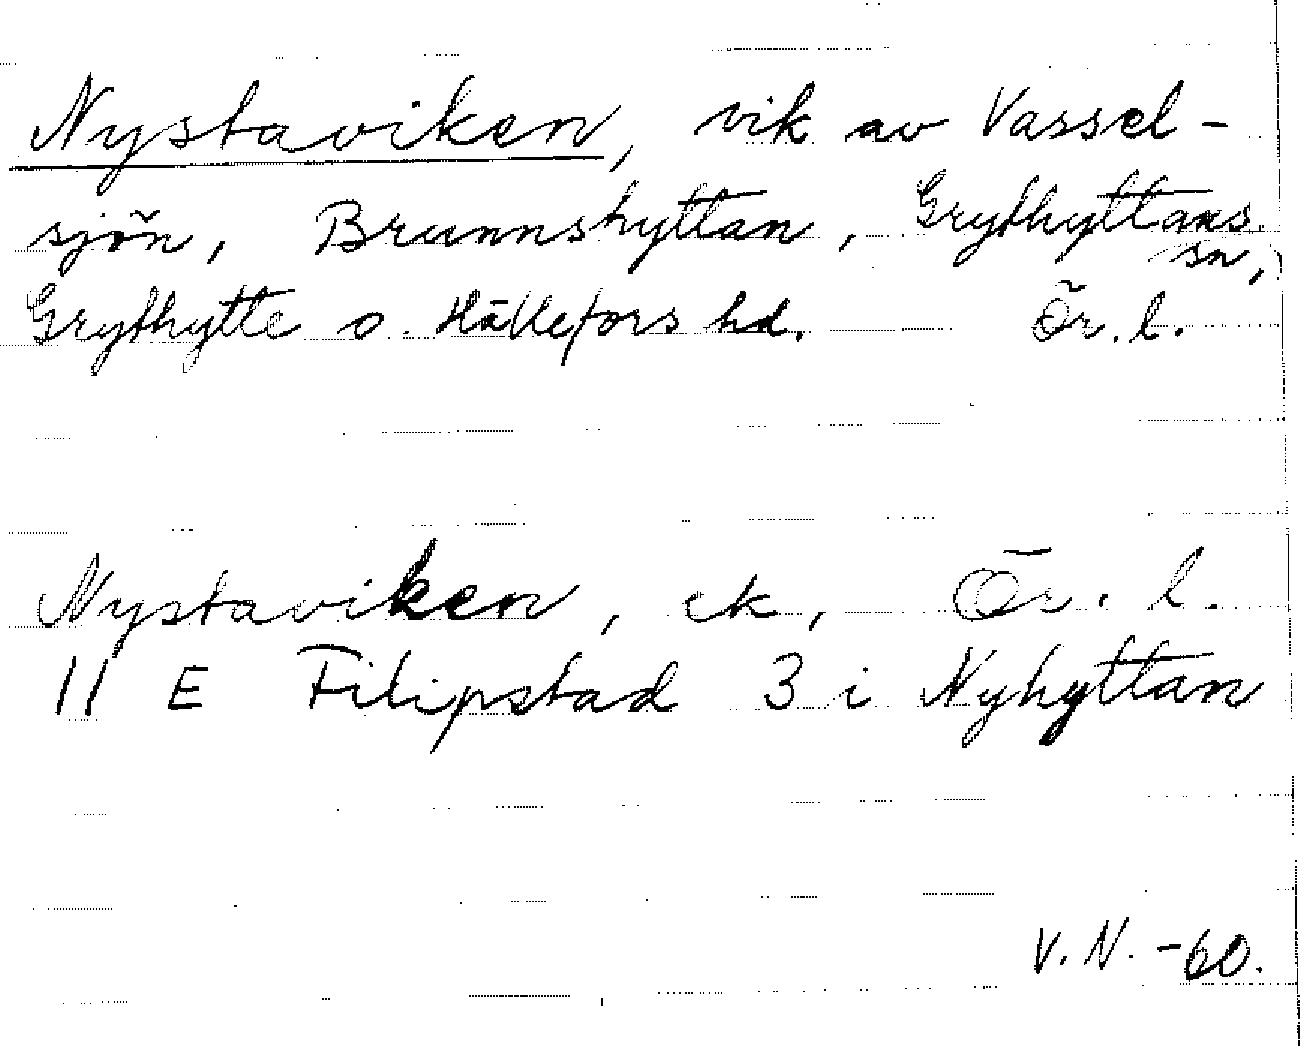 Nystaviken, vik av Vassel-
sjön, Brunnshyttan, Grythyttans
sn,
Grythytte o. Hällefors hd. Ör. l.
Nystaviken, ek, Ör. l.
11 E Filipstad 3 i Nyhyttan
V. N. -60.